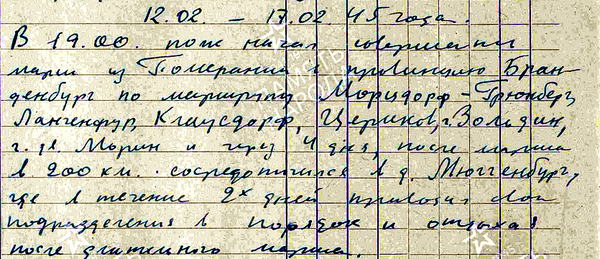 12.02. – 17.02.45 года.
В 19.00. полк начал совершать
марш из Померании в провинцию Бран-
денбург по маршруту Морицдорф – Грюнберг,
Лангенфур, Клаусдорф, Церников, г. Зольдин,
г. Морин и через 4 дня, после марша
в 200 км. сосредоточился в д. Мюггенбург,
где в течение 2х дней приводил свои
подразделения в порядок и отдыхал
после длительного марша.